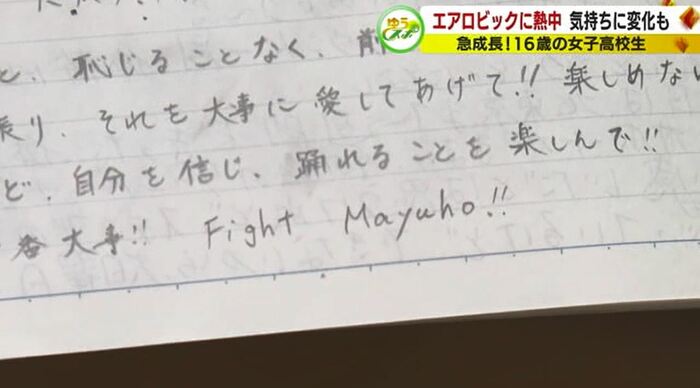 ゆうスポ
エアロビックに熱中 気持ちに変化も
急成長!16歳の女子高校生
と、恥じることなく、前
張り、それを大事に愛してあげて!! 楽しめない
ど、自分を信じ、踊れることを楽しんで!!
番大事!! Fight Mayuho!!